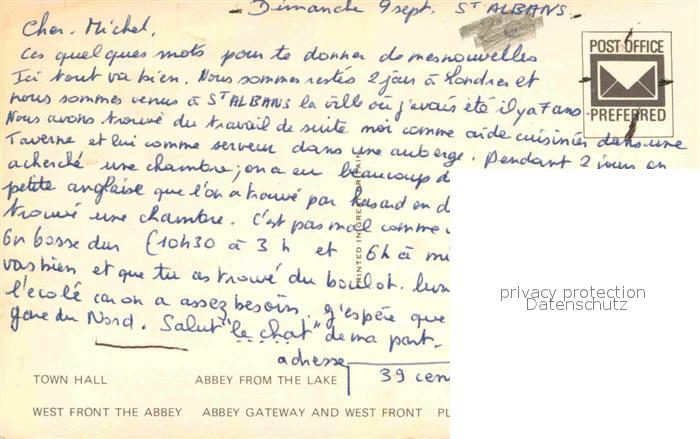 Dimanche 9 sept. ST ALBANS.
Cher. Michel,
Ces quelques mots pour te donner de mes nouvelles
Ici tout va bien. Nous sommes restés 2 jours à Londres et
nous sommes venus à ST ALBANS la ville où j'avais été il y a 7 ans.
Nous avons trouvé du travail de suite moi comme aide cuisinier dans une
Taverne et lui comme serveur dans une auberge. Pendant 2 jours on
a cherché une chambre, on a eu beaucoup
petite anglaise que l'on a trouvé par hasard en
trouvé une chambre. C'est pas mal comme
On bosse dur (10h30 à 3 h et 6h à
vas bien et que tu as trouvé du boulot.
l'école car on a assez besoin. J'espère que
gare du Nord. Salut "le chat" de ma part.
adresse
39
POST OFFICE
PREFERRED
PRINTED IN GREAT BRITAIN
privacy protection
Datenschutz
TOWN HALL ABBEY FROM THE LAKE
WEST FRONT THE ABBEY ABBEY GATEWAY AND WEST FRONT